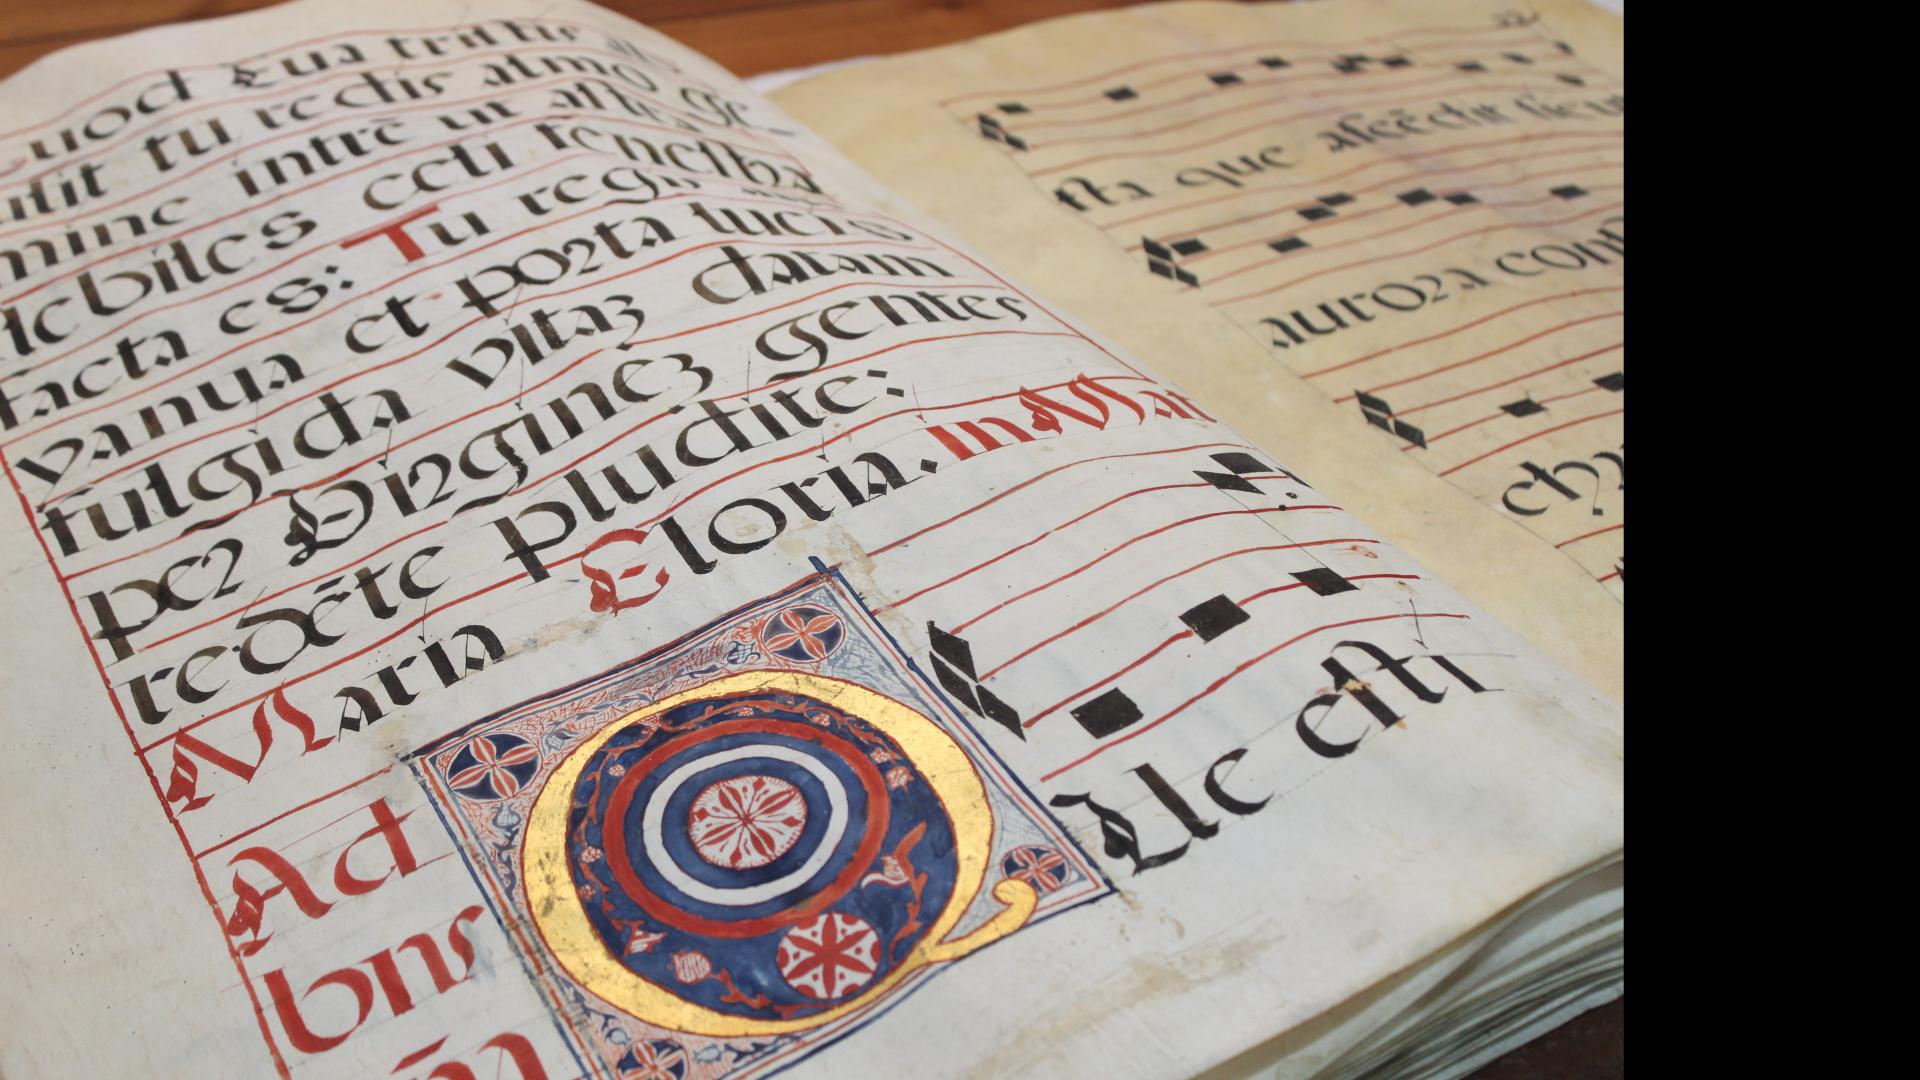 Quod Eua tristis
tulit tu redis almo ge-
mine intrēt ut
flebiles celi fenestra
facta es: Tu regis
yanua et porta lucis
fulgida vitaz datam
per Virginēz gentes
redēte pludite:
Maria Gloria. In Mat
Ad
bn̄s
Ue esti
sta que ascēdit sicut
aurora